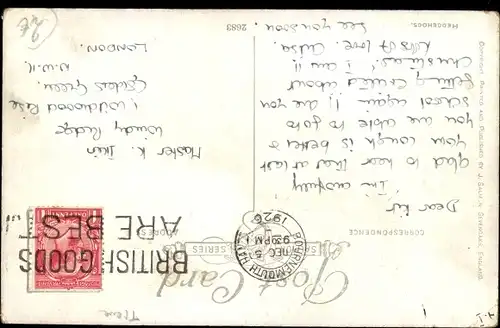 Post Card
CORRESPONDENCE
ADDRESS
Dear Kit,
I'm awfully
glad to hear that at last
your cough is better &
you are able to go to
school again. I, are you
getting excited about
Christmas? I am!!
love
See you soon.
Master K.
Windy Ridge
1, Wildwood Rise
Golders Green.
N.W.11.
LONDON.
BRITISH GOODS
ARE BEST
BOURNEMOUTH
9 30 PM
5 DEC
1926
HEDGEHOGS.
2683
COPYRIGHT. PRINTED AND PUBLISHED BY J. SALMON, SEVENOAKS, ENGLAND.
SERIES